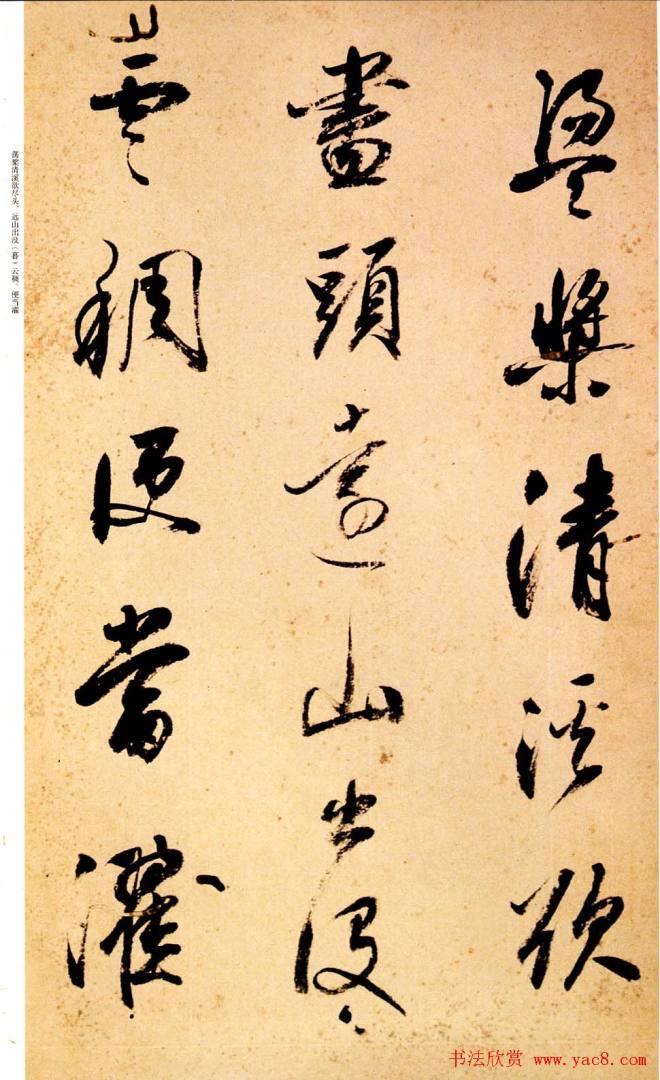 盪槳清溪欲
盡頭遠山出没
雲稠便當濯
荡桨清溪欲尽头、远山出没（暮）云稠、便当濯
书法欣赏 www.yac8.com